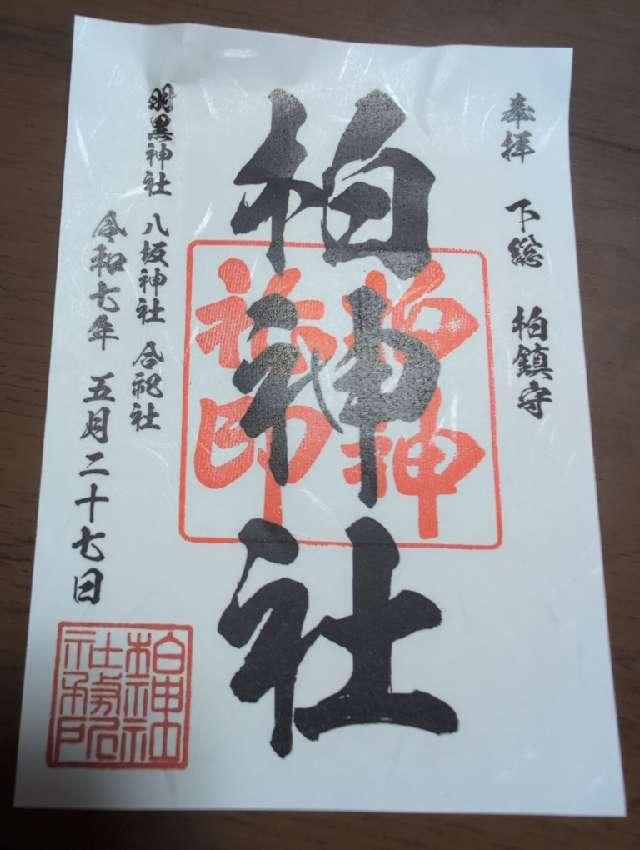 奉拝 下總 柏鎮守
柏神社
柏神社印
羽黒神社 八坂神社 合祀社
令和七年 五月二十七日
柏神社社務所印